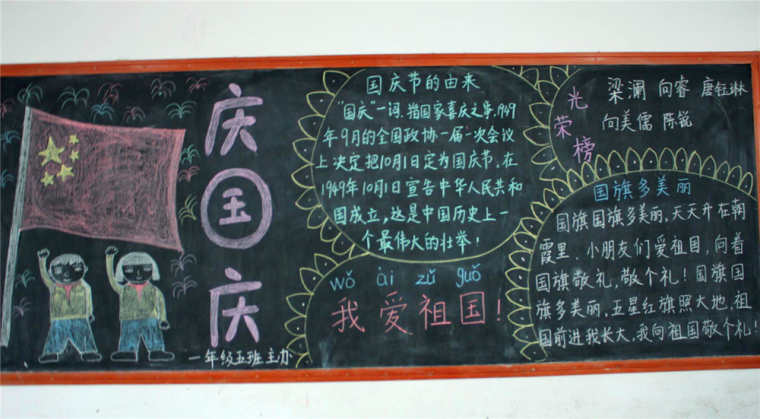 庆
国
庆
一年级五班主办
国庆节的由来
"国庆"一词,指国家喜庆之事,1949
年9月的全国政协一届一次会议
上决定把10月1日定为国庆节,在
1949年10月1日宣告中华人民共和
国成立,这是中国历史上一
个最伟大的壮举!
wǒ ài zǔ guó
我爱祖国!
光荣榜
梁澜 向睿 唐钰琳
向美儒 陈锐
国旗多美丽
国旗国旗多美丽,天天升在朝
霞里.小朋友们爱祖国,向着
国旗敬礼,敬个礼!国旗国
旗多美丽,五星红旗照大地,祖
国前进我长大,我向祖国敬个礼!